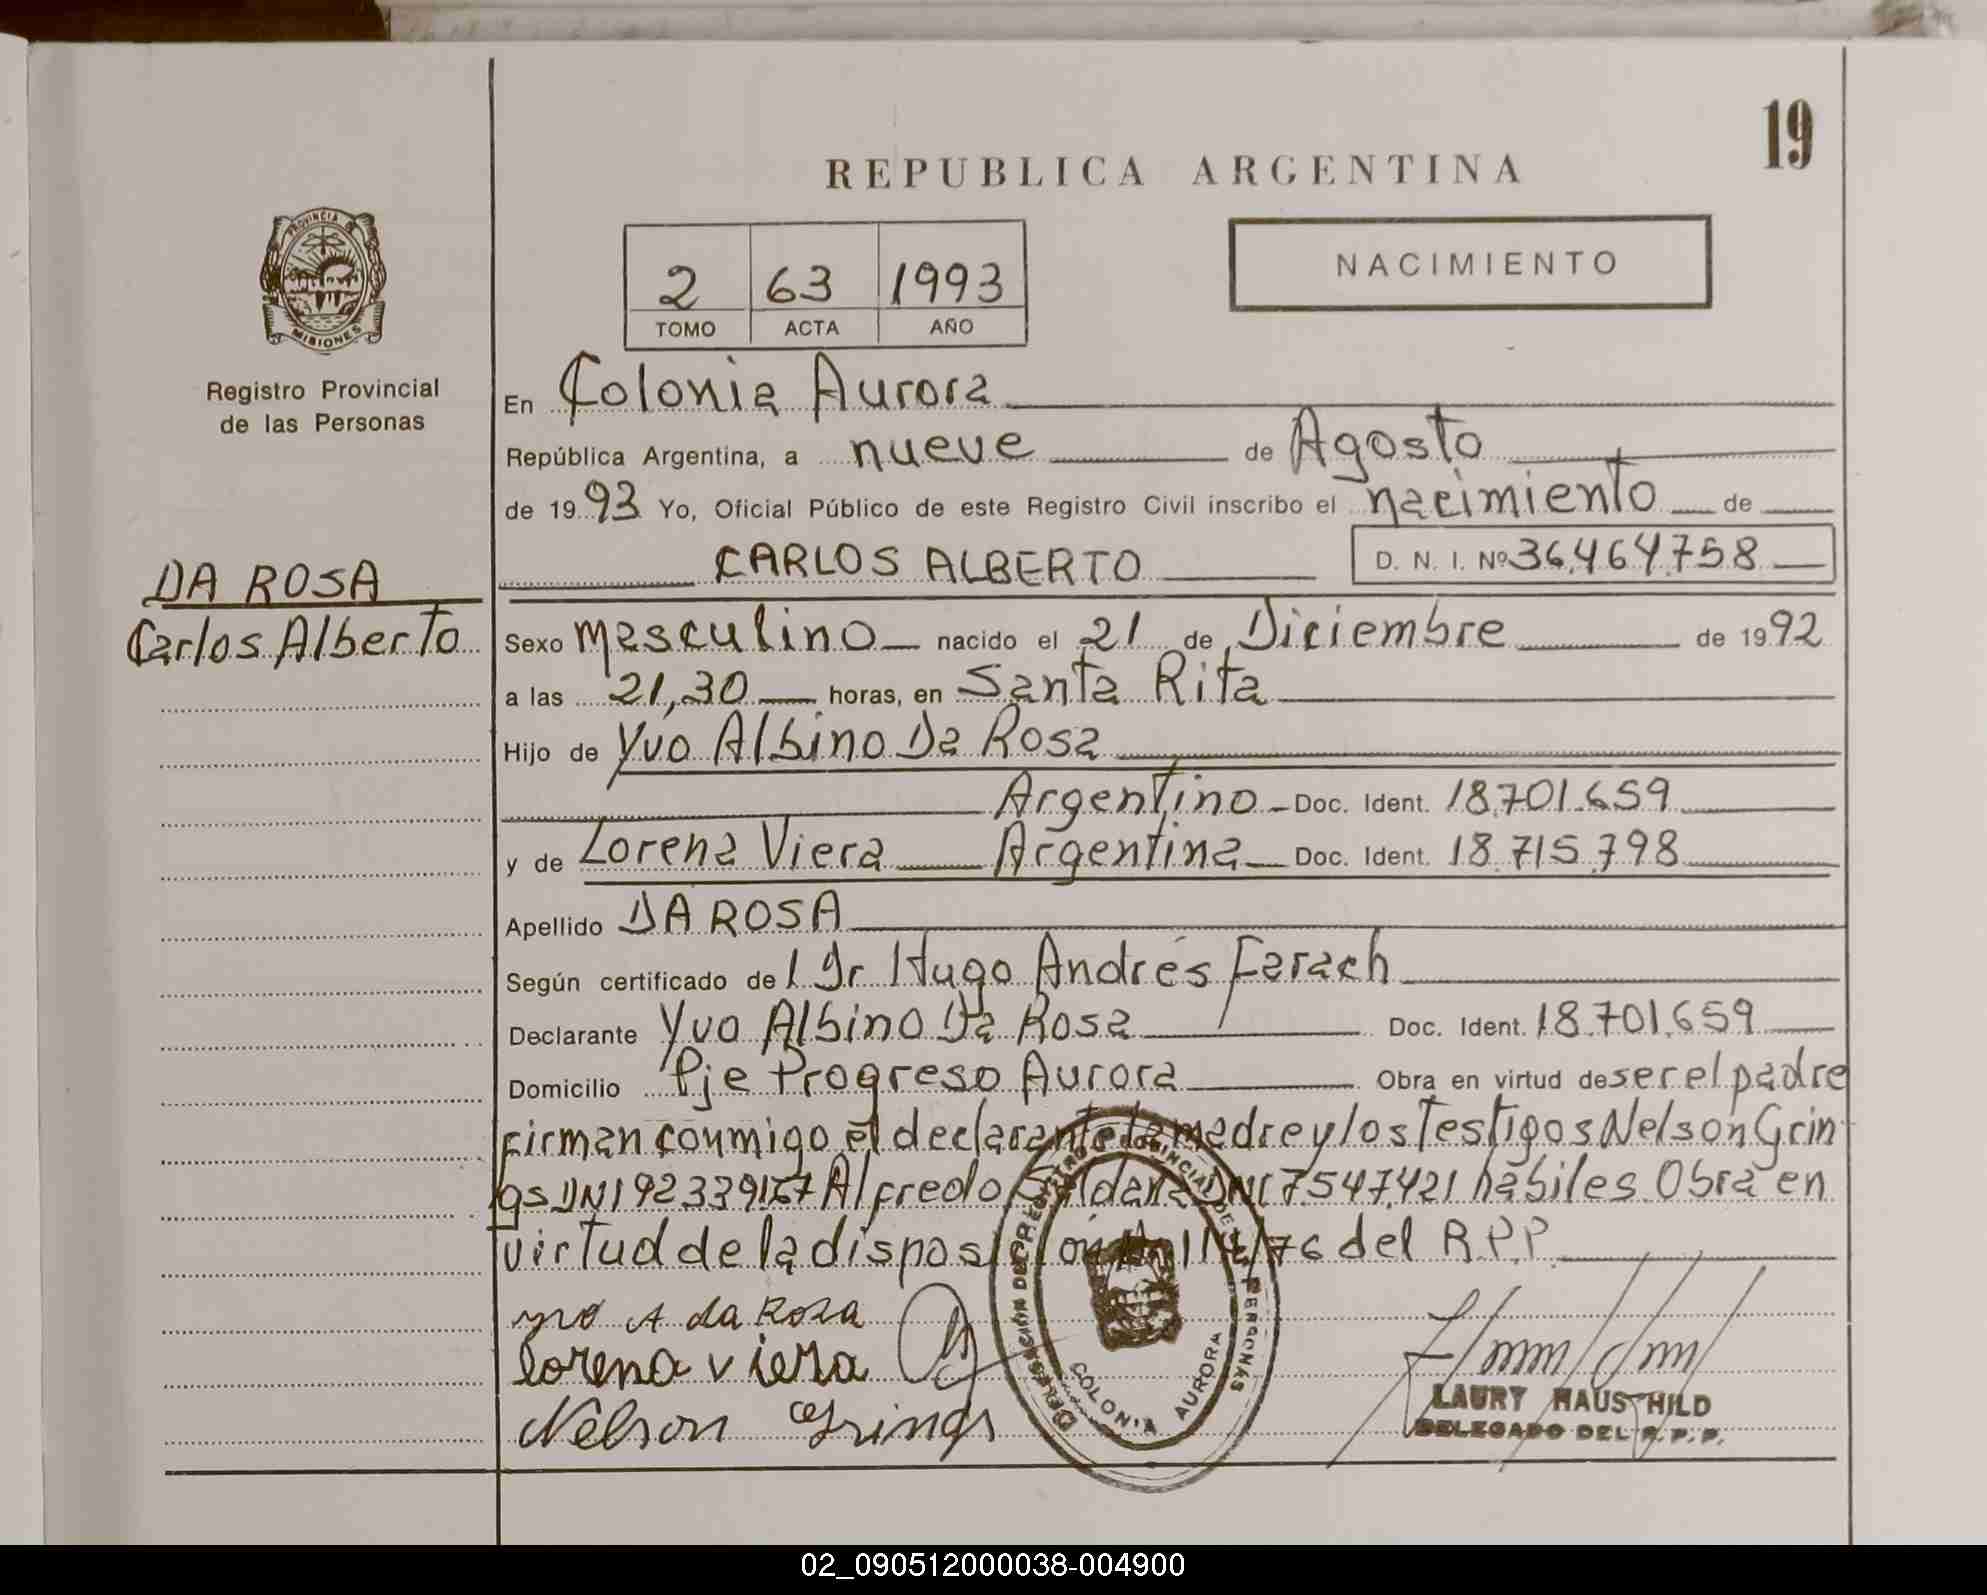 19
REPUBLICA ARGENTINA
PROVINCIA DE
MISIONES
Registro Provincial
de las Personas
2 63 1993
TOMO ACTA AÑO
NACIMIENTO
En Colonia Aurora
República Argentina, a nueve de Agosto
de 1993 Yo, Oficial Público de este Registro Civil inscribo el nacimiento de
CARLOS ALBERTO D. N. I. Nº 36.464.758
DA ROSA
Carlos Alberto
Sexo Masculino nacido el 21 de Diciembre de 1992
a las 21,30 horas, en Santa Rita
Hijo de Yvo Albino Da Rosa
Argentino Doc. Ident. 18.701.659
y de Lorena Viera Argentina Doc. Ident. 18.715.798
Apellido DA ROSA
Según certificado del Dr Hugo Andrés Farach
Declarante Yvo Albino Da Rosa Doc. Ident. 18.701.659
Domicilio Pje Progreso Aurora Obra en virtud de ser el padre
firman conmigo el declarante la madre y los Testigos Nelson Grin
gs DNI 92339167 Alfredo DNI 7547421 hábiles Obra en
virtud de la disposición 76 del R.P.P.
yvo A da Rosa
lorena viera
Nelson Grings
DELEGACIÓN DEL REGISTRO PROVINCIAL DE LAS PERSONAS
COLONIA AURORA
LAURY HAUSCHILD
DELEGADO DEL R.P.P.
02_090512000038-004900